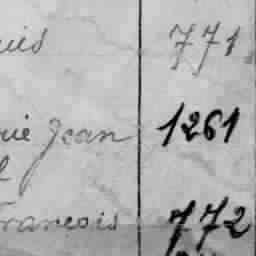 uis 771
rie Jean 1261
f
François 772